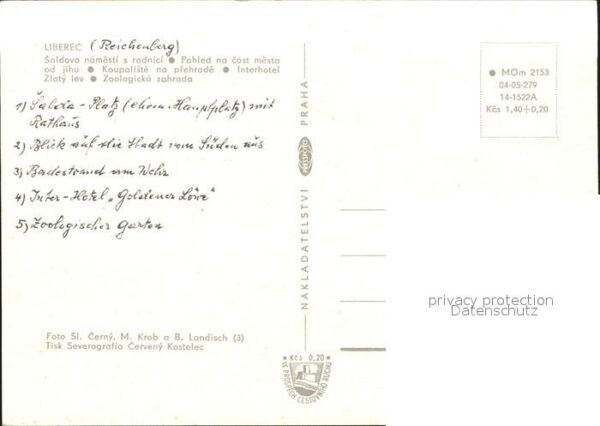 LIBEREC (Reichenberg)
Šaldovo náměstí s radnicí ● Pohled na část města
od jihu ● Koupaliště na přehradě ● Interhotel
Zlatý lev ● Zoologická zahrada
1) Šalda-Platz (ehem. Hauptplatz) mit
Rathaus
2) Blick auf die Stadt vom Süden aus
3) Badestrand am Wehr
4) Inter-Hotel „Goldener Löwe"
5) Zoologischer Garten
Foto Sl. Černý, M. Krob a B. Landisch (3)
Tisk Severografia Červený Kostelec
NAKLADATELSTVÍ PRESSFOTO PRAHA
Kčs 0,20
VE PROSPĚCH CESTOVNÍHO RUCHU
● MOm 2153
04-05-279
14-1522A
Kčs 1,40÷0,20
privacy protection
Datenschutz